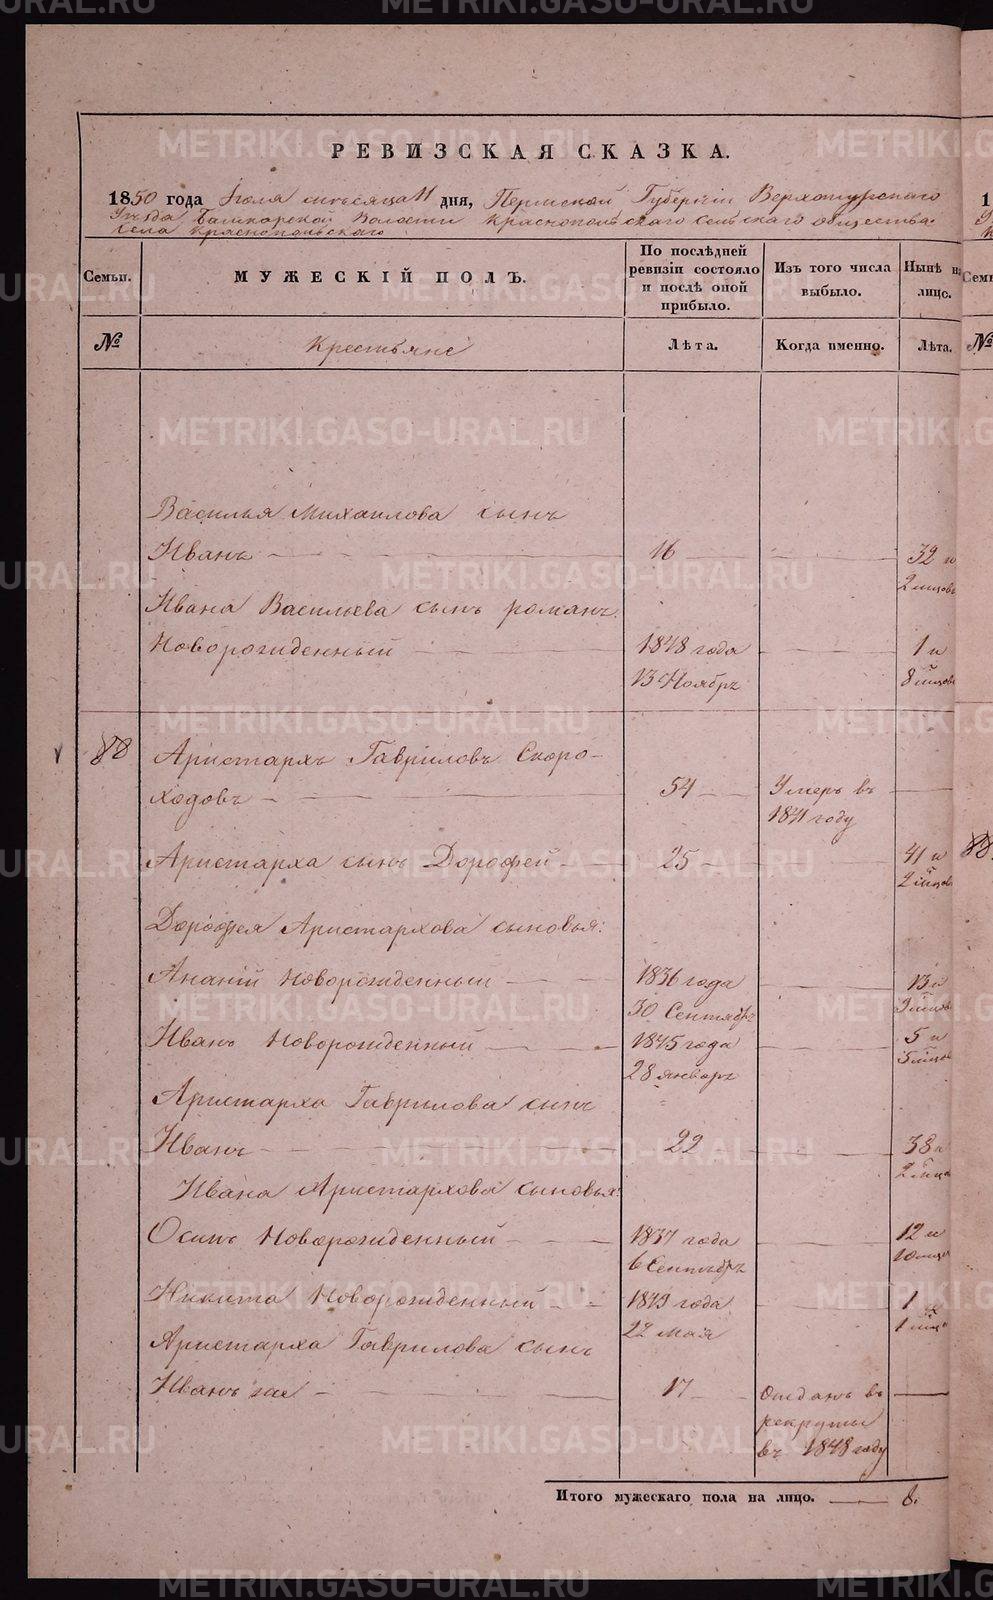 METRIKI.GASO-URAL.RU
РЕВИЗСКАЯ СКАЗКА.
1850 года Июля месяца 11 дня, Пермской Губерніи Верхотурскаго
Уѣзда Башкарской Волости Краснопольскаго Сельскаго общества
Села Краснопольскаго
Семьи. МУЖЕСКІЙ ПОЛЪ. По послѣдней ревизіи состояло и послѣ оной прибыло. Изъ того числа выбыло. Нынѣ на лицо.
№ Крестьяне Лѣта. Когда именно. Лѣта.
Василья Михаилова сынъ
Иванъ 16 32 и
2 мѣсов
Ивана Васильева сынъ романъ
Новорожденный 1848 года 1 и
13 Ноябрь 8 мѣсов
88 Аристархъ Гавриловъ Скоро-
ходовъ 54 Умеръ въ
1841 году
Аристарха сынъ Дорофей 25 41 и
2 мѣсов
Дорофея Аристархова сыновья:
Ананій Новорожденный 1836 года 13 и
30 Сентябрь 9 мѣсов
Иванъ Новорожденный 1845 года 5 и
28 январь 5 мѣсов
Аристарха Гаврилова сынъ
Иванъ 22 38 и
2 мѣсо
Ивана Аристархова сыновья:
Осипъ Новорожденный 1837 года 12 и
6 Сентябрь 10 мѣсо
Никита Новорожденный 1849 года 1 и
22 мая 1 мѣсо
Аристарха Гаврилова сынъ
Иванъ же 17 Отданъ въ
рекруты
въ 1848 году
Итого мужескаго пола на лицо. 8.